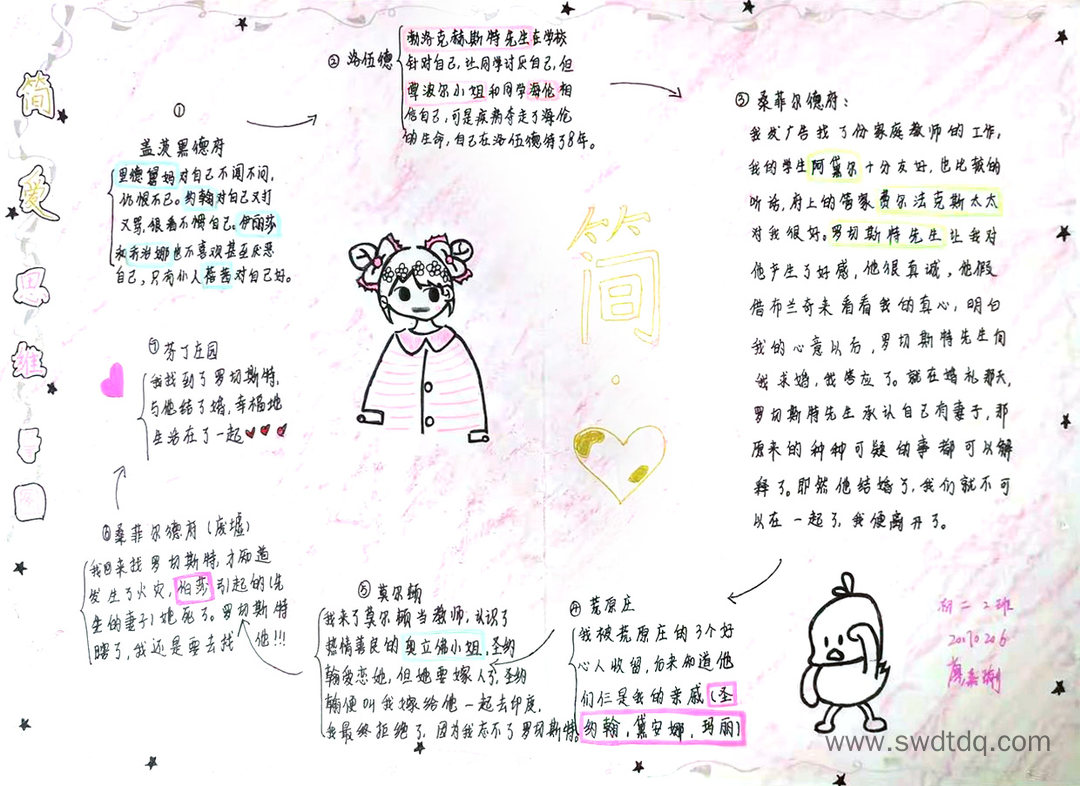 简
爱
思
维
导
图
①
盖茨黑德府
里德舅妈对自己不闻不问,
仇恨不已。约翰对自己又打
又骂,很看不惯自己。伊丽莎
和乔治娜也不喜欢甚至厌恶
自己,只有仆人蓓茜对自己好。
②洛伍德
勃洛克赫斯特先生在学校
针对自己,让同学讨厌自己,但
谭波尔小姐和同学海伦相
信自己,可是疾病夺走了海伦
的生命,自己在洛伍德待了8年。
③桑菲尔德府:
我找广告找了份家庭教师的工作,
我的学生阿黛尔十分友好,也比较的
听话,府上的管家费尔法克斯太太
对我很好。罗切斯特先生让我对
他产生了好感,他很真诚,他假
借布兰奇来看看我的真心,明白
我的心意以后,罗切斯特先生向
我求婚,我答应了。就在婚礼那天,
罗切斯特先生承认自己有妻子,那
原来的种种可疑的事都可以解
释了。即然他结婚了,我们就不可
以在一起了,我便离开了。
简
④荒原庄
我被荒原庄的3个好
心人收留,后来知道他
们仨是我的亲戚(圣
约翰,黛安娜,玛丽)
⑤莫尔顿
我来了莫尔顿当教师,认识了
热情善良的奥立佛小姐,圣约
翰爱恋她,但她要嫁人了,圣约
翰便叫我嫁给他一起去印度,
我最终拒绝了,因为我忘不了罗切斯特。
⑥桑菲尔德府(废墟)
我回来找罗切斯特,才知道
发生了火灾,伯莎引起的(先
生的妻子)她死了。罗切斯特
瞎了,我还是要去找他!!!
⑦芬丁庄园
我找到了罗切斯特,
与他结了婚,幸福地
生活在了一起
初二2班
20170206
www.swdtdq.com